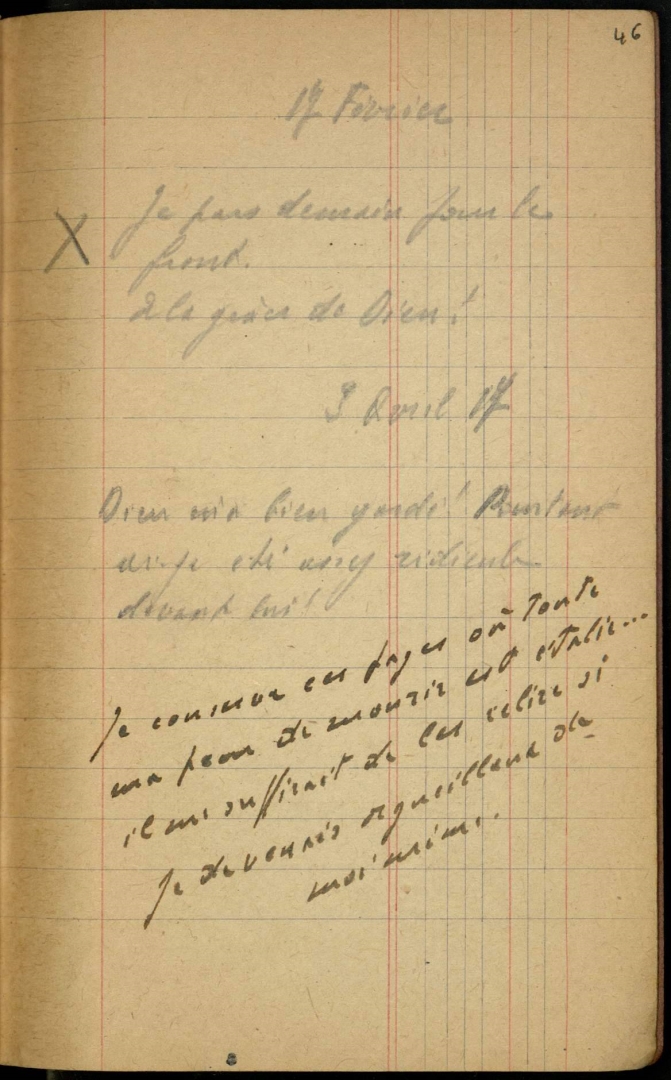 46
17 Février
X Je pars demain pour le
front.
à la grâce de Dieu !
3 Avril 17
Dieu m'a bien gardé ! Pourtant
ai-je été assez ridicule
devant lui !
Je conserve ces pages où toute
ma peur de mourir est établie...
il me suffirait de les relire si
je devenais orgueilleux de
moi même.